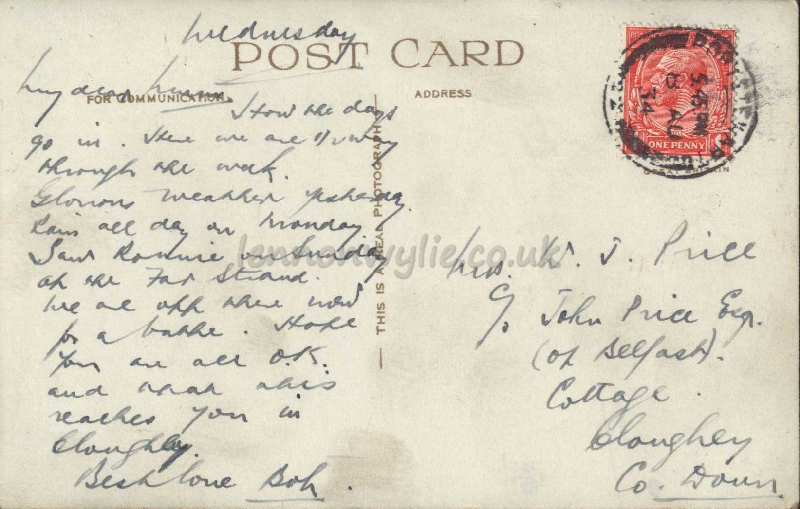 Wednesday
POST CARD
FOR COMMUNICATION
ADDRESS
My dear
How the days
go in. Here we are 1/2 way
through the week.
Glorious weather yesterday.
Rain all day on Monday.
Saw Ronnie on Sunday
at the Far Strand.
We are off there now
for a bathe. Hope
you are all O.K.
and that this
reaches you in
Cloughey.
Best love Bob.
THIS IS A REAL PHOTOGRAPH
Mrs. W. J. Price
c/o John Price Esq.
(of Belfast).
Cottage
Cloughey
Co. Down.
PORTSTEWART
5.45 PM
8 AU
34
ONE PENNY
lennonwylie.co.uk